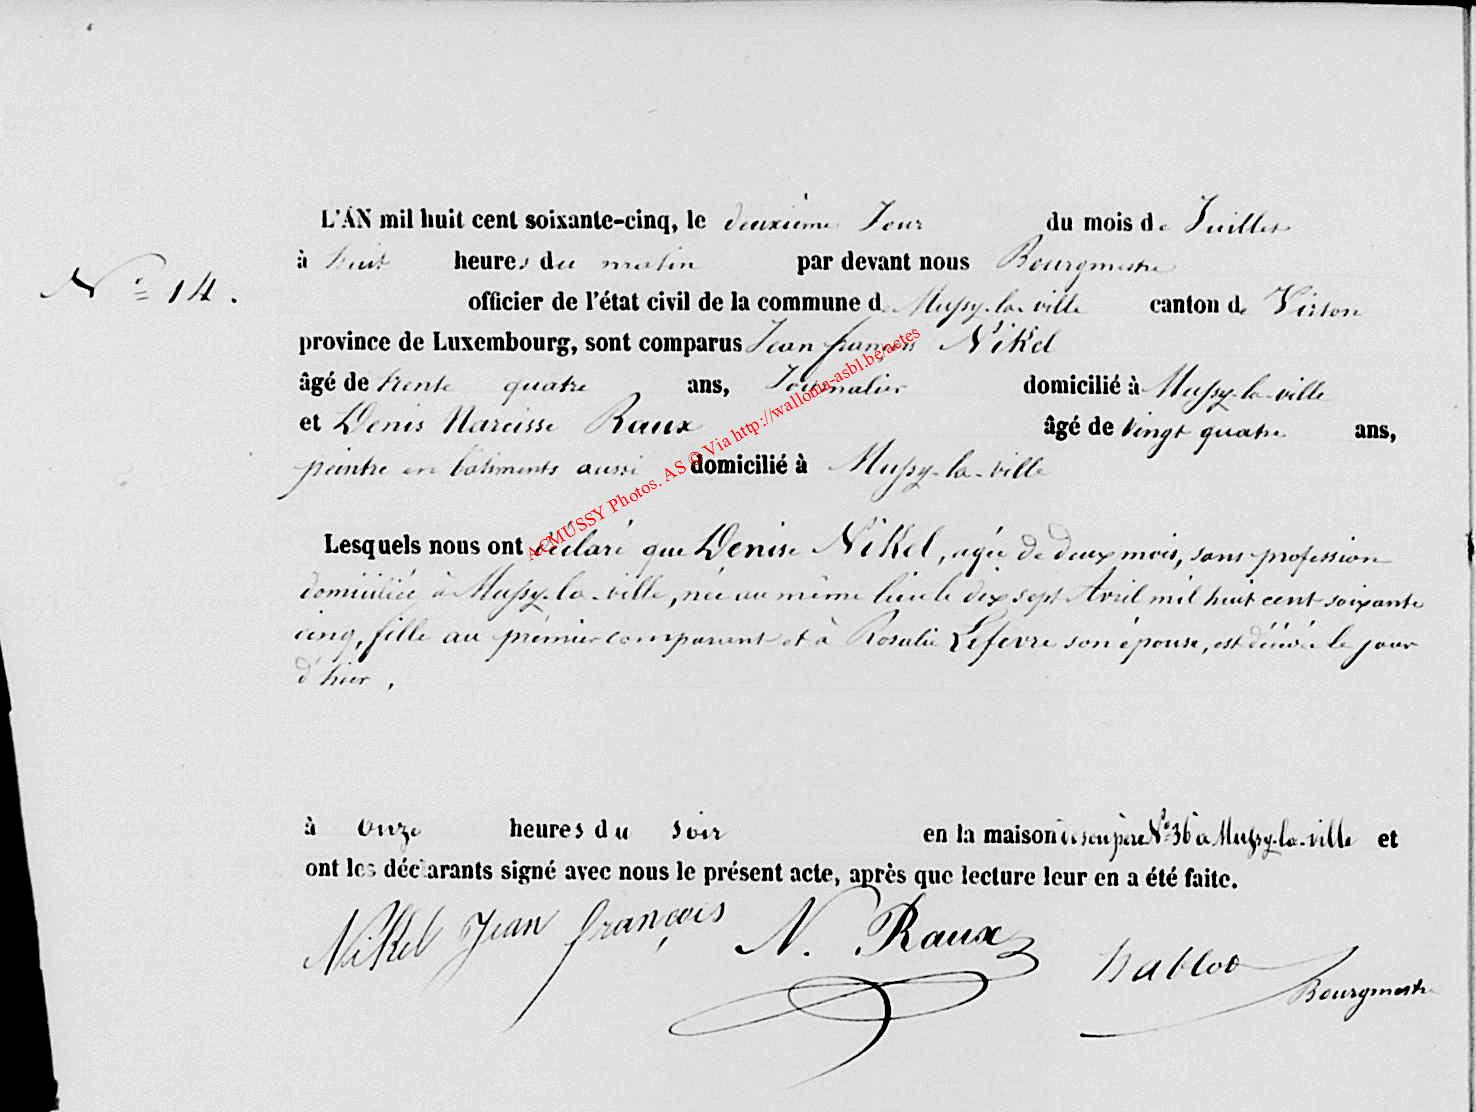 L'AN mil huit cent soixante-cinq, le deuxième Jour du mois de Juillet
N° 14.
à huit heures du matin par devant nous Bourgmestre
officier de l'état civil de la commune d Mussy-la-ville canton de Virton
province de Luxembourg, sont comparus Jean françois Nikel
âgé de trente quatre ans, Journalier domicilié à Mussy-la-ville
et Denis Narcisse Raux âgé de vingt quatre ans,
peintre en bâtiments aussi domicilié à Mussy-la-ville
ACMUSSY Photos. AS © Via http://wallonia-asbl.be/actes
Lesquels nous ont déclaré que Denise Nikel, agée de deux mois, sans profession
domiciliée à Mussy-la-ville, née au même lieu le dix sept Avril mil huit cent soixante
cinq, fille au prémier comparant et à Rosalie Lefevre son épouse, est décédée le jour
d'hier,
à onze heures du soir en la maison de son père N° 36 à Mussy-la-ville et
ont les déclarants signé avec nous le présent acte, après que lecture leur en a été faite.
Nikel Jean françois N. Raux hablot
Bourgmestre